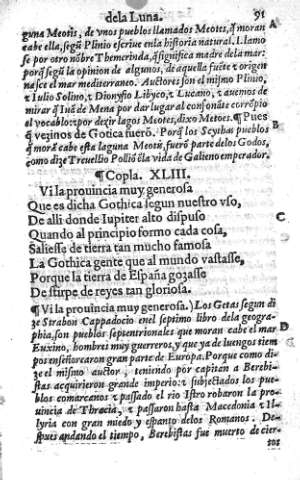 dela Luna. 91
guna Meotis, de vnos pueblos llamados Meotes, q̃ moran
a cabe ella, segũ Plinio escriue enla historia natural. Llamo
se por otro nõbre Themerinda, q̃ significa madre dela mar:
porq̃ segũ la opinion de algunos, de aquella fuẽte & origen
nasce el mar mediterraneo. Auctores son el mismo Plinio,
& Iulio Solino, & Dionysio Libyco, & Lucano, & auemos de
mirar q̃ Iuã de Mena por dar lugar al consonãte corrõpio
el vocablo: por dezir lagos Meotes, dixo Metoes. ¶ Pues
q̃ vezinos de Gotica fuerõ. Porq̃ los Scythas pueblos B
q̃ morã cabe esta laguna Meotis, fuerõ parte delos Godos,
como dize Treuellio Pollio ẽla vida de Galieno emperador.
¶ Copla. XLIII.
Vi la prouincia muy generosa
Que es dicha Gothica segun nuestro vso,
De alli donde Iupiter alto dispuso C
Quando al principio formo cada cosa,
Saliesse de tierra tan mucho famosa
La Gothica gente que al mundo vastasse,
Porque la tierra de España gozasse
De stirpe de reyes tan gloriosa.
¶ Vi la prouincia muy generosa.) Los Getas segun di
ze Strabon Cappadocio enel septimo libro dela geogra-
phia, son pueblos septentrionales que moran cabe el mar D
Euxino, hombres muy guerreros, y que ya de luengos tiem
pos enseñorearon gran parte de Europa. Porque como di-
ze el mismo auctor, teniendo por capitan a Berebi-
stas acquirieron grande imperio: & subjectados los pue-
blos comarcanos & passado el rio Istro robaron la pro-
uincia de Thracia, & passaron hasta Macedonia & Il-
lyria con gran miedo y espanto delos Romanos. De-
spues andando el tiempo, Berebistas fue muerto de cier-
tos